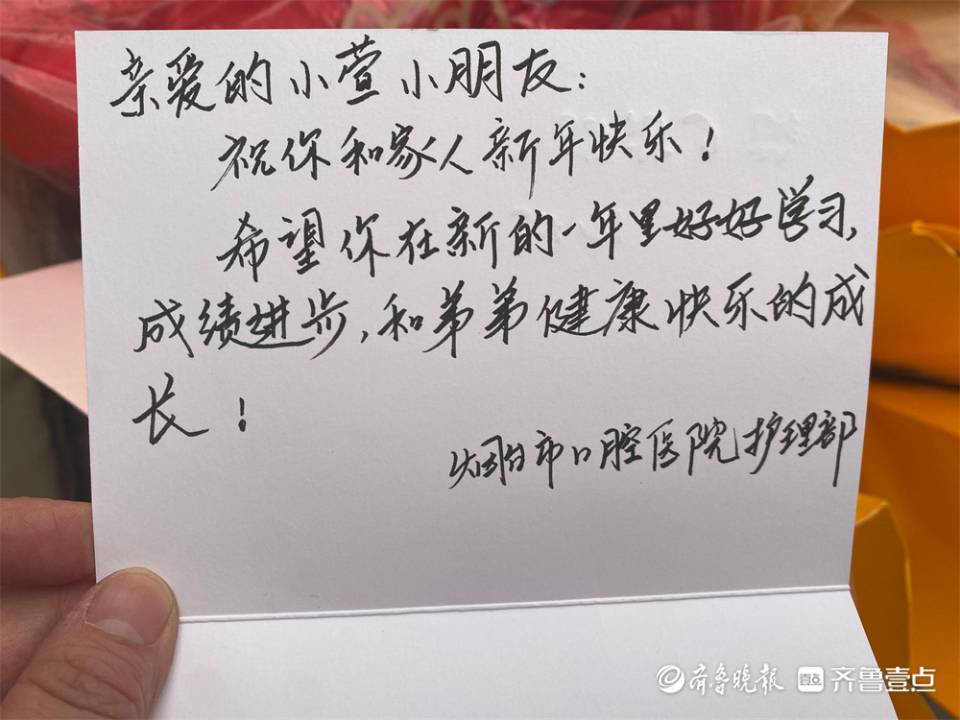 亲爱的小萱小朋友：
祝你和家人新年快乐！
希望你在新的一年里好好学习，
成绩进步，和弟弟健康快乐的成
长！
烟台市口腔医院护理部
齐鲁晚报 齐鲁壹点